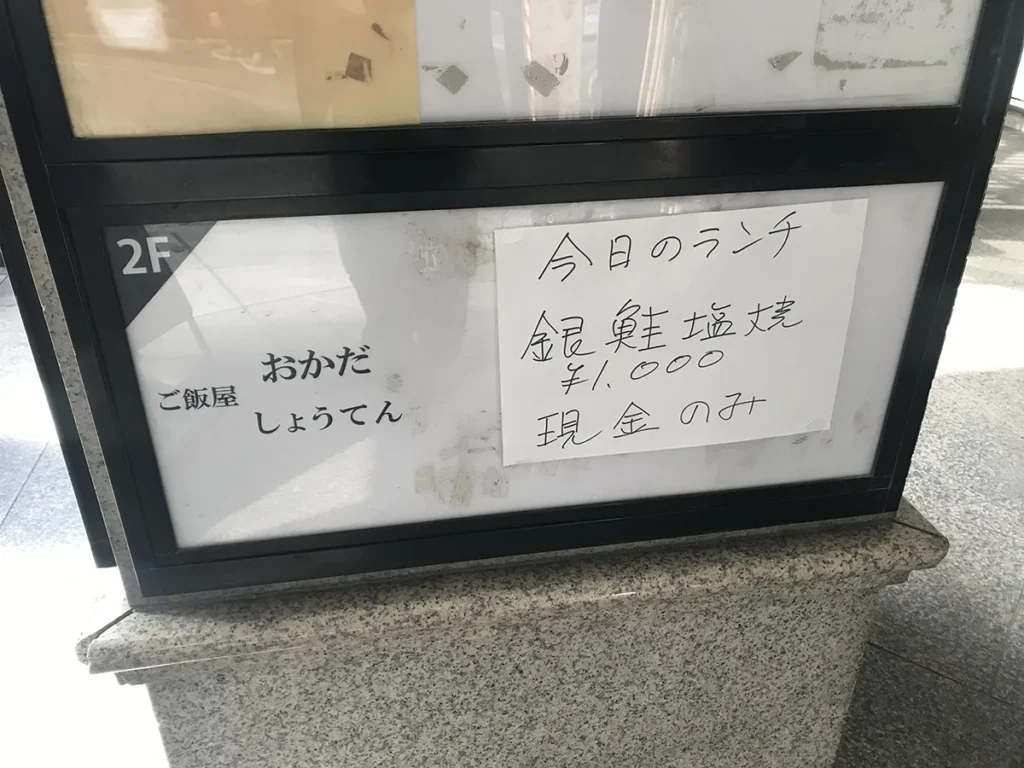 2F
ご飯屋
おかだ
しょうてん
今日のランチ
銀鮭塩焼
¥1.000
現金のみ